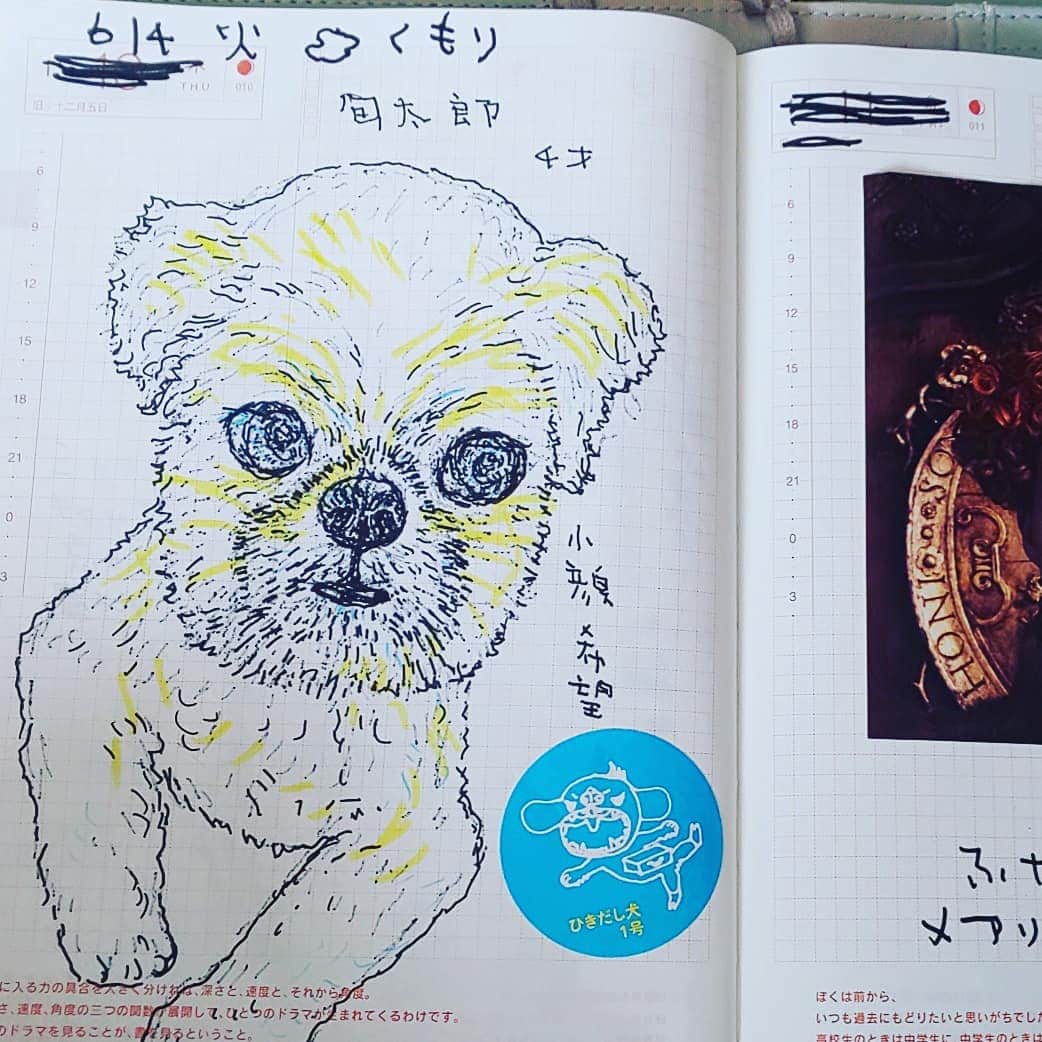 614 火 くもり
THU 010
旧:十二月五日
旬太郎
4才
6
9
12
15
18
21
0
3
小鶏希望
ひきだし犬
1号
に入る力の具合を大きく分ければ、深さと、速度と、それから角度。
さ、速度、角度の三つの関数が展開して、ひとつのドラマが生まれてくるわけです。
のドラマを見ることが、書を見るということ。
011
6
9
12
15
18
21
0
3
HONNI
ふせ
メアリ
ぼくは前から、
いつも過去にもどりたいと思いがちでした
高校生のときは中学生に、中学生のときは